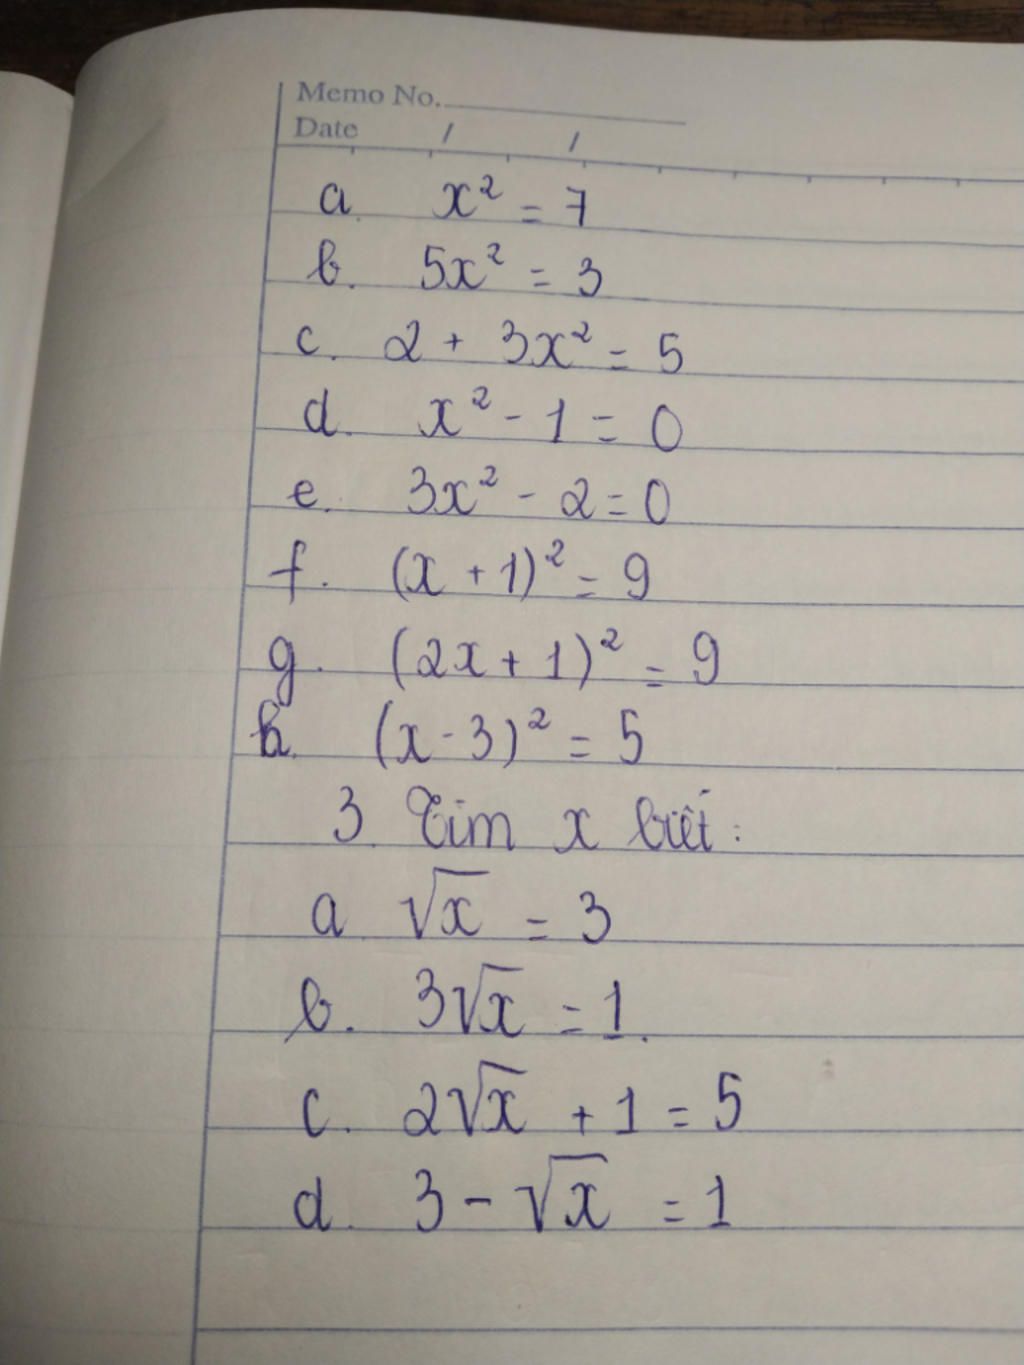 Memo No.
Date / /
a. x² = 7
b. 5x² = 3
c. 2 + 3x² = 5
d. x² - 1 = 0
e. 3x² - 2 = 0
f. (x + 1)² = 9
g. (2x + 1)² = 9
h. (x - 3)² = 5
3. Tìm x biết :
a √x = 3
b. 3√x = 1.
c. 2√x + 1 = 5
d. 3 - √x = 1